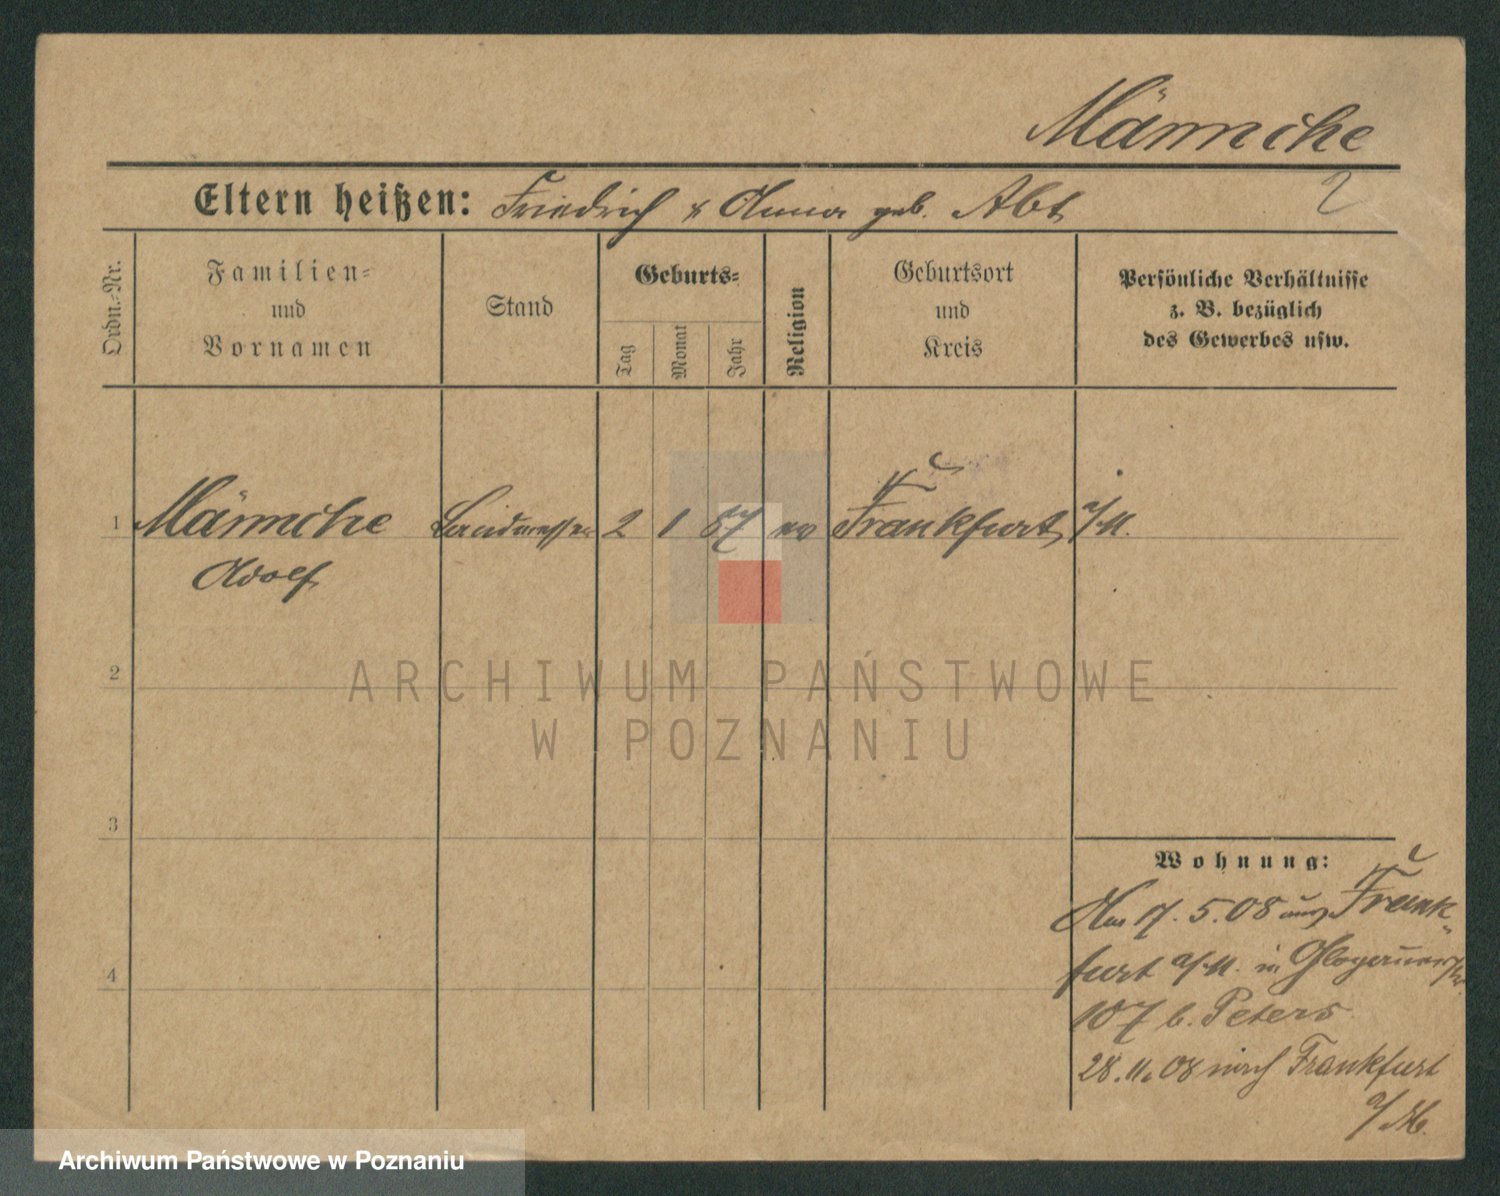 Männche
Eltern heißen: Friedrich & Anna geb. Abt
2
Ordn.-Nr.
Familien-
und
Vornamen
Stand
Geburts-
Tag
Monat
Jahr
Religion
Geburtsort
und
Kreis
Persönliche Verhältnisse
z. B. bezüglich
des Gewerbes usw.
1 Männche Landmesser 2 1 57 ev Frankfurt a/M.
Adolf
2
3
4
ARCHIWUM PAŃSTWOWE
W POZNANIU
Wohnung:
Am 17. 5. 08 aus Frank-
furt a/M. in Glogauerstr.
107 b. Peters
28. 11. 08 nach Frankfurt
a/M.
Archiwum Państwowe w Poznaniu